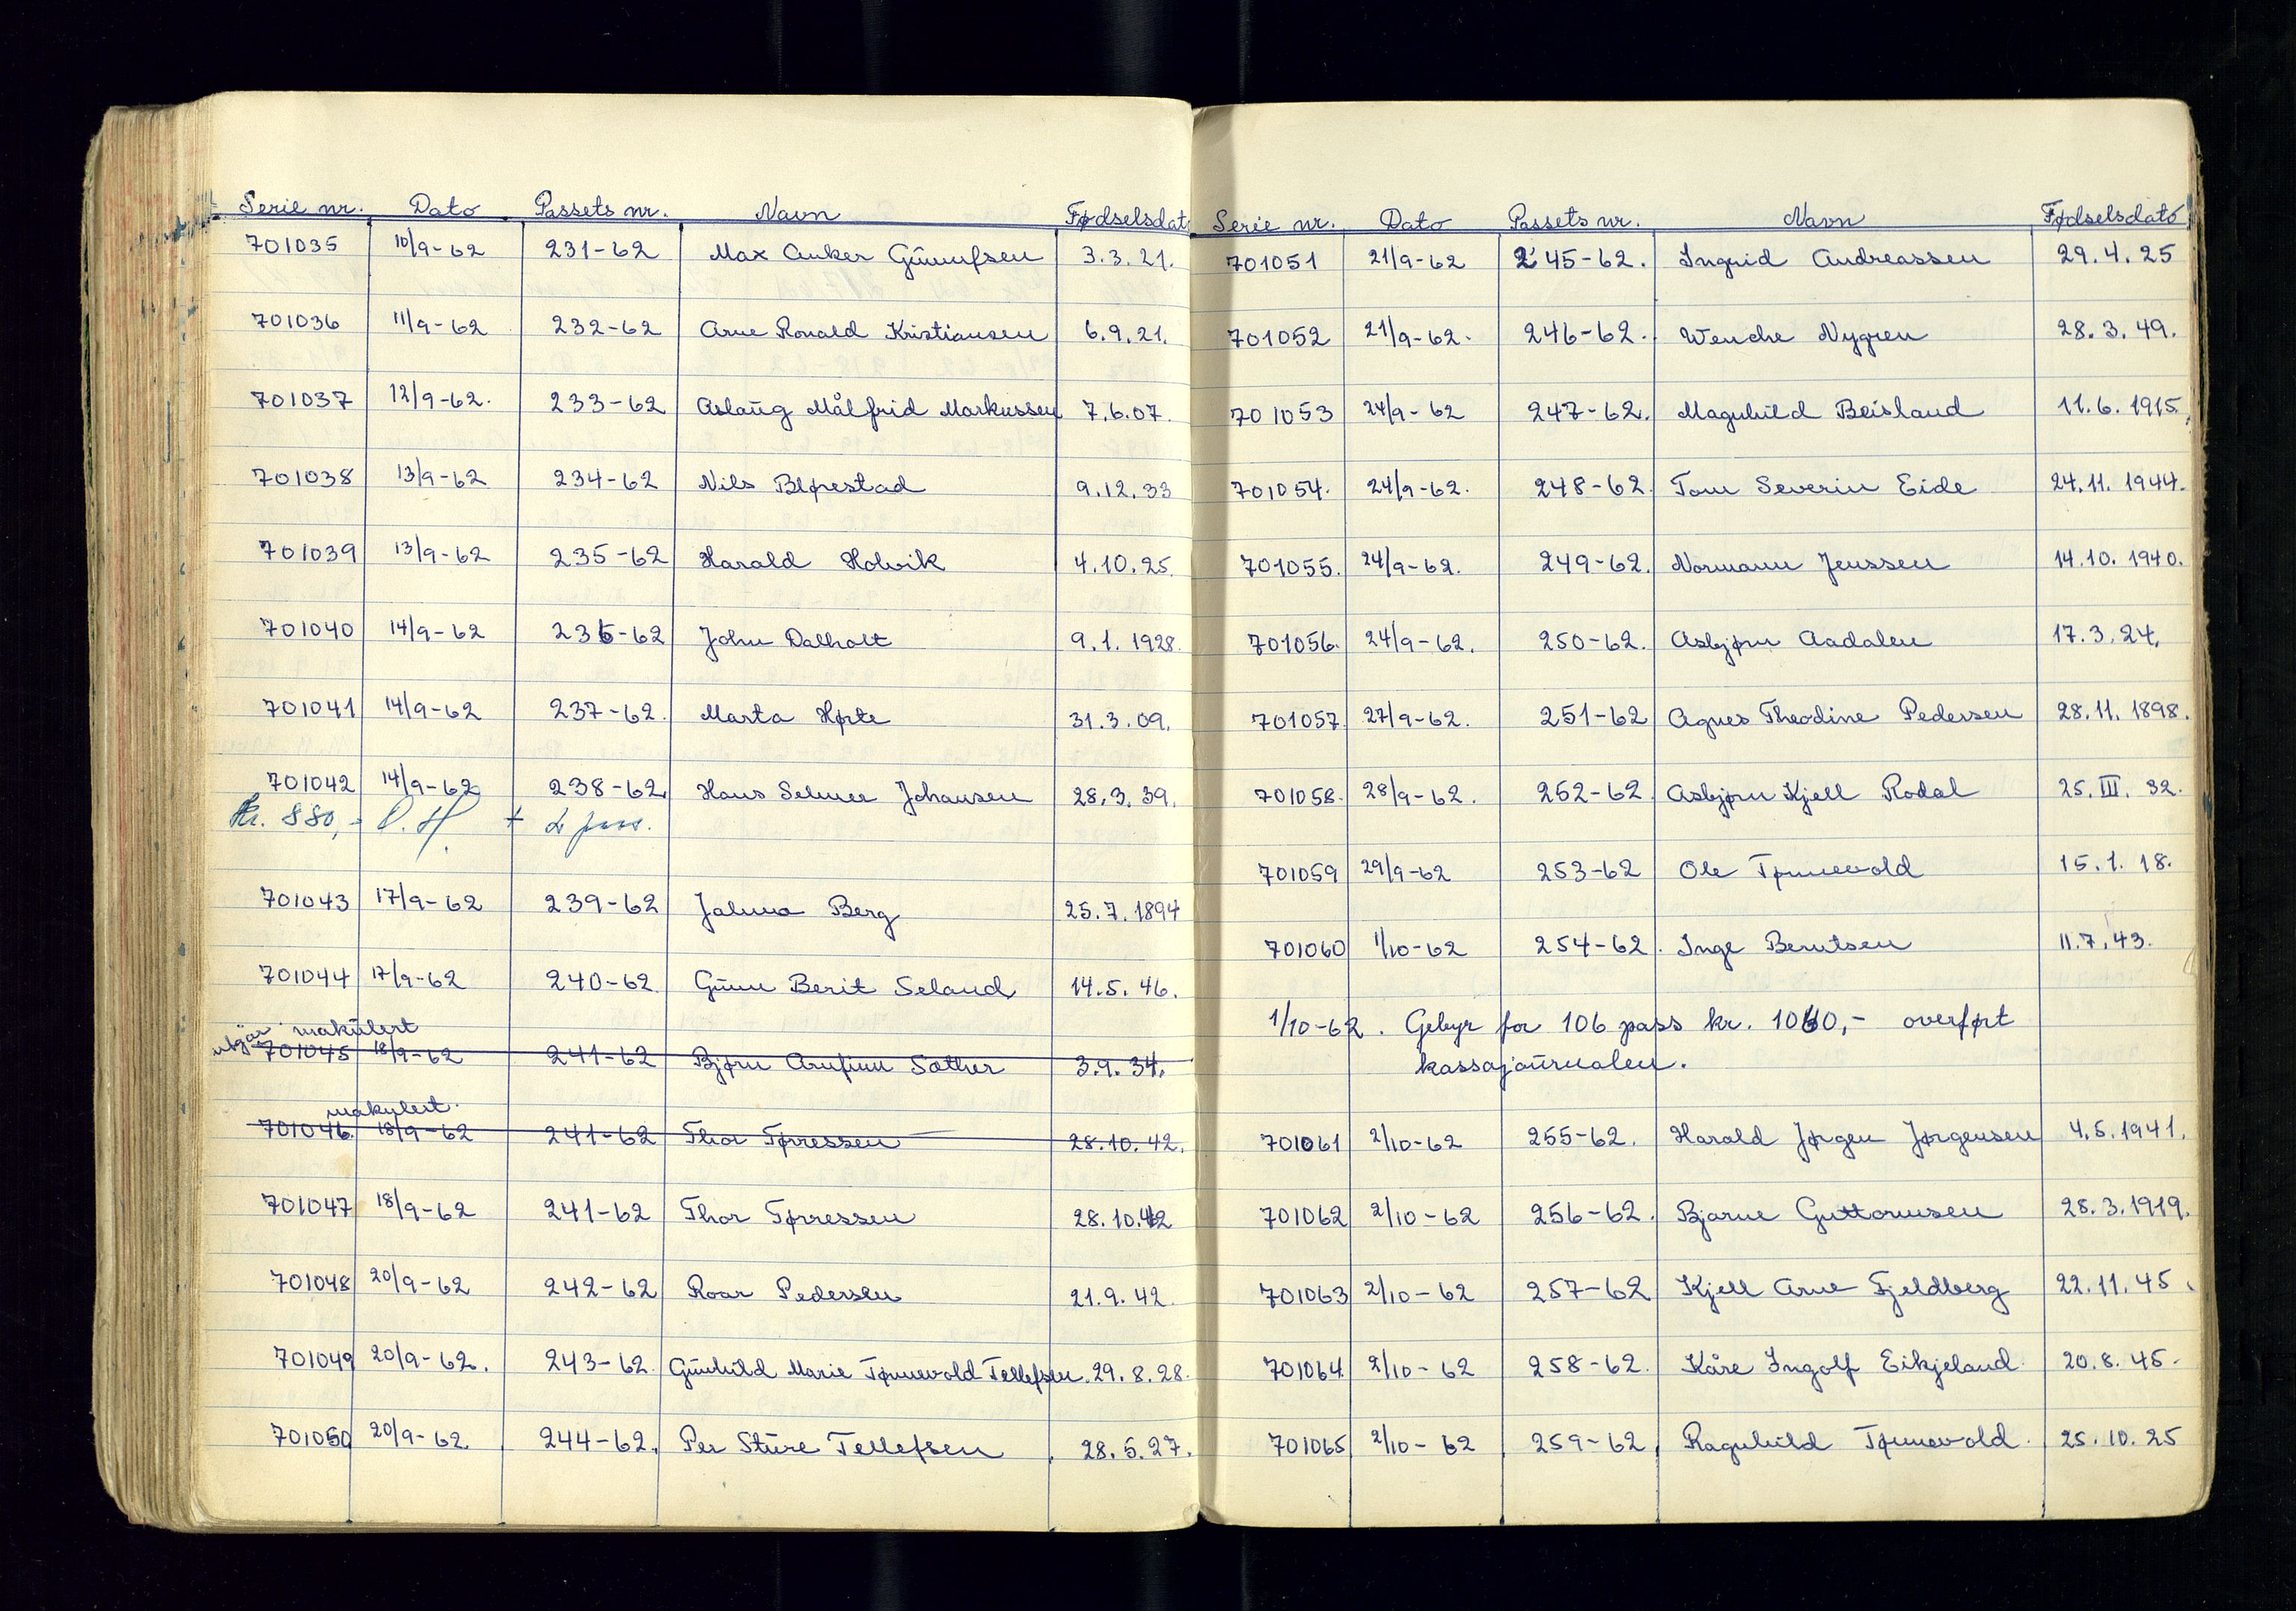 Serie nr. Dato Passets nr. Navn Fødselsdat
701035 10/9-62 231-62 Max Anker Gunnufsen 3.3.21.
701036 11/9-62 232-62 Arne Ronald Kristiansen 6.9.21.
701037 12/9-62. 233-62 Aslaug Målfrid Markussen 7.6.07.
701038 13/9-62 234-62 Nils Blørestad 9.12.33
701039 13/9-62 235-62 Harald Holvik 4.10.25.
701040 14/9-62 236-62 John Dalholt 9.1.1928.
701041 14/9-62 237-62. Marta Hørte 31.3.09.
701042 14/9-62 238-62. Hans Selmer Johansen 28.3.39.
Kr. 880,- O.H. + 2 pass.
701043 17/9-62 239-62 Jalma Berg 25.7.1894
701044 17/9-62 240-62 Gunn Berit Seland 14.5.46.
utgår makulert
701045 18/9-62 241-62 Bjørn Arnfinn Sæther 3.9.34.
makulert.
701046. 18/9-62 241-62 Thor Tørressen 28.10.42.
701047 18/9-62 241-62 Thor Tørressen 28.10.42
701048 20/9-62 242-62 Roar Pedersen 21.9.42.
701049 20/9-62. 243-62. Gunhild Marie Tønnevold Tellefsen. 29.8.28.
701050 20/9-62. 244-62. Per Sture Tellefsen 28.5.27.
Serie nr. Dato Passets nr. Navn Fødselsdato
701051 21/9-62 245-62. Ingrid Andreassen 29.4.25
701052 21/9-62. 246-62. Wenche Nygren 28.3.49.
701053 24/9-62 247-62. Magnhild Beisland 11.6.1915.
701054. 24/9-62. 248-62. Tom Severin Eide 24.11.1944.
701055. 24/9-62. 249-62. Normann Jenssen 14.10.1940.
701056. 24/9-62. 250-62. Asbjørn Aadalen 17.3.24.
701057. 27/9-62. 251-62 Agnes Theodine Pedersen 28.11.1898.
701058. 28/9-62. 252-62 Asbjørn Kjell Rodal 25.III.32.
701059 29/9-62 253-62 Ole Tønnevold 15.1.18.
701060 1/10-62 254-62. Inge Berntsen 11.7.43.
1/10-62. Gebyr for 106 pass kr. 1060,- overført
kassajournalen.
701061 2/10-62 255-62. Harald Jørgen Jørgensen 4.5.1941.
701062 2/10-62 256-62. Bjarne Guttormsen 28.3.1919.
701063 2/10-62 257-62 Kjell Arne Fjeldberg 22.11.45.
701064. 2/10-62 258-62. Kåre Ingolf Eikjeland. 20.8.45.
701065 2/10-62 259-62. Ragnhild Tønnevold. 25.10.25